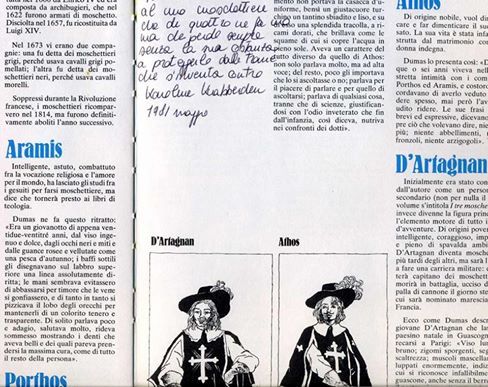 1622 furono armati di moschetto.
Disciolta nel 1657, fu ricostituita da
Luigi XIV.
Nel 1673 vi erano due compa-
gnie: una fu detta dei moschettieri
grigi, perché usava cavalli grigi po-
mellati; l'altra fu detta dei mo-
schettieri neri, perché usava cavalli
morelli.
Soppressi durante la Rivoluzione
francese, i moschettieri ricompar-
vero nel 1814, ma furono definiti-
vamente aboliti l'anno successivo.
Aramis
Intelligente, astuto, combattuto
fra la vocazione religiosa e l'amore
per il mondo, ha lasciato gli studi fra
i gesuiti per farsi moschettiere, ma
dice che tornerà presto ai libri di
teologia.
Dumas ne fa questo ritratto:
«Era un giovanotto di appena ven-
tidue-ventitré anni, dal viso inge-
nuo e dolce, dagli occhi neri e miti e
dalle guance rosee e vellutate come
una pesca d'autunno; i baffi sottili
gli disegnavano sul labbro supe-
riore una linea assolutamente di-
ritta; le mani sembrava evitassero
di abbassarsi per timore che le vene
si gonfiassero, e di tanto in tanto si
pizzicava il lobo degli orecchi per
mantenerli di un colorito tenero e
trasparente. Di solito parlava poco
e adagio, salutava molto, rideva
sommesso mostrando i denti che
aveva belli e dei quali pareva pren-
dersi la massima cura, come di tutto
il resto della persona».
Porthos
al mio moschettiere
che di quattro ne fa
ma che perde sempre
senza la sua
a proteggerlo
che
Karoline
1981 maggio
mento non portava la casacca d'u-
niforme, bensì un giustacuore tur-
chino un tantino sbiadito e liso, e su
questo una splendida tracolla, a ri-
cami dorati, che brillava come le
squame di cui si copre l'acqua in
pieno sole. Aveva un carattere del
tutto diverso da quello di Athos:
non solo parlava molto, ma ad alta
voce; del resto, poco gli importava
che lo si ascoltasse o no; parlava per
il piacere di parlare e per quello di
ascoltarsi; parlava di qualsiasi cosa,
tranne che di scienze, giustifican-
dosi con l'odio inveterato che fin
dall'infanzia, così diceva, nutriva
nei confronti dei dotti».
D'Artagnan
Athos
Athos
Di origine nobile, vuol di
care e far dimenticare il suo
sato. La sua vita è stata infat
strutta dal matrimonio con
donna indegna.
Dumas lo presenta così: «D
que o sei anni viveva nell
stretta intimità con i com
Porthos ed Aramis, e costoro
cordavano di averlo veduto
dere spesso, mai però l'av
udito ridere. Le sue frasi
brevi ed espressive, dicevano
pre ciò che volevano dire, nie
più; niente abbellimenti, n
fronzoli, niente arzigogoli».
D'Artagnan
Inizialmente era stato con
dall'autore come un person
secondario (non per nulla il
volume s'intitola I tre moschett
invece divenne la figura princ
l'elemento motore di tutto i
d'avventure. Di origini povere
intelligente, coraggioso, imp
e pieno di spavalda ambi
D'Artagnan diventa moschet
più tardi degli altri, ma sarà l
a fare una carriera militare: c
morirà in battaglia, ucciso d
palla di cannone il giorno stes
cui sarà nominato maresciall
Francia.
Ecco come Dumas descriv
giovane D'Artagnan che las
paesino natale in Guascogn
recarsi a Parigi: «Viso lun
bruno; zigomi sporgenti, seg
scaltrezza; muscoli mascellari
luppati enormemente, indizi
cui si riconosce infallibilme
guascone, anche senza il berre